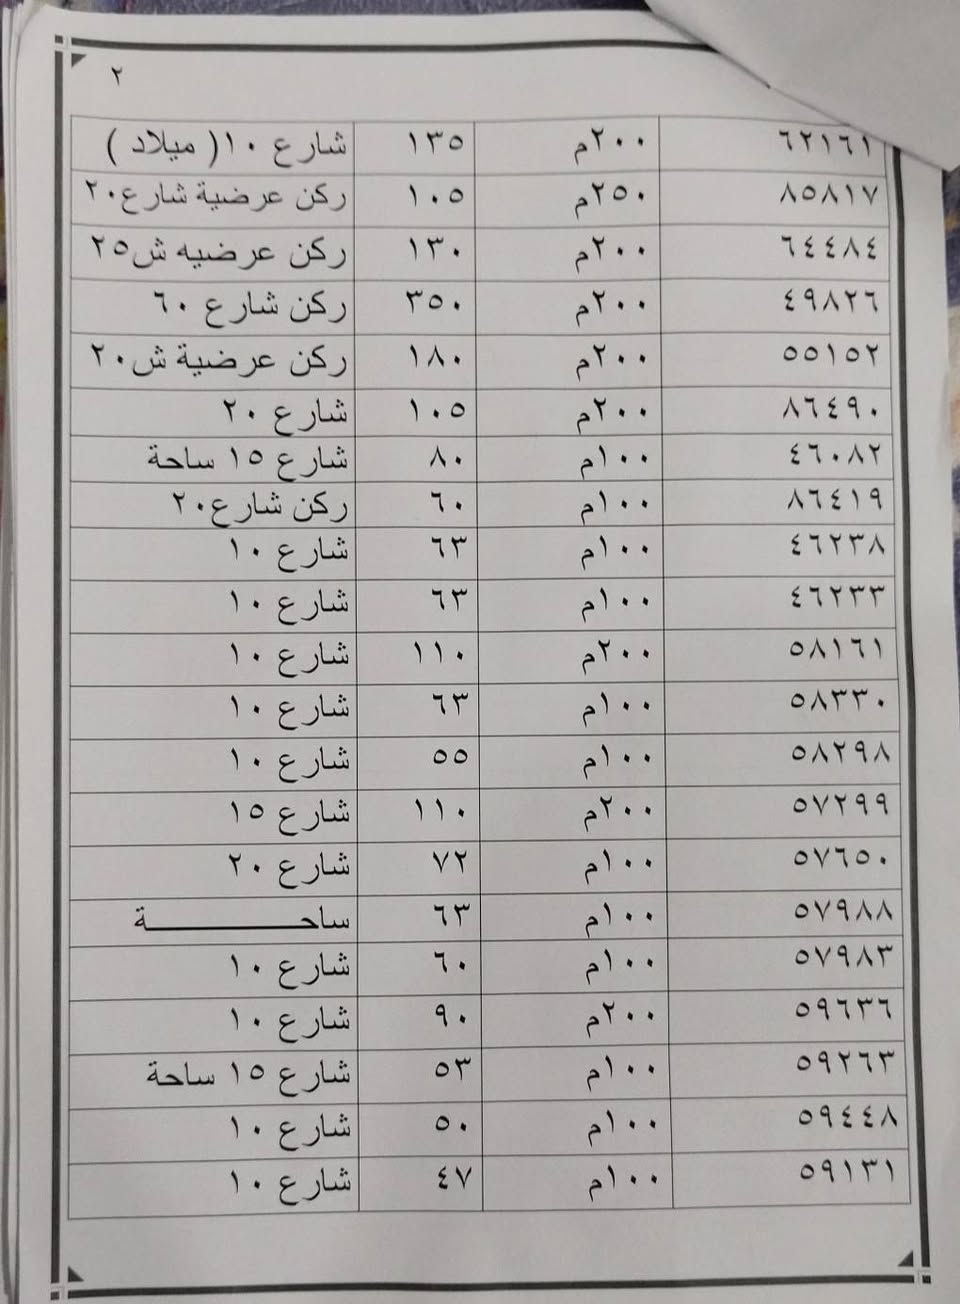 ٢
٦٢١٦١ ٢٠٠م ١٣٥ شارع ١٠( ميلاد )
٨٥٨١٧ ٢٥٠م ١٠٥ ركن عرضية شارع٢٠
٦٤٤٨٤ ٢٠٠م ١٣٠ ركن عرضيه ش٢٥
٤٩٨٢٦ ٢٠٠م ٣٥٠ ركن شارع ٦٠
٥٥١٥٢ ٢٠٠م ١٨٠ ركن عرضية ش٢٠
٨٦٤٩٠ ٢٠٠م ١٠٥ شارع ٢٠
٤٦٠٨٢ ١٠٠م ٨٠ شارع ١٥ ساحة
٨٦٤١٩ ١٠٠م ٦٠ ركن شارع٢٠
٤٦٢٣٨ ١٠٠م ٦٣ شارع ١٠
٤٦٢٣٣ ١٠٠م ٦٣ شارع ١٠
٥٨١٦١ ٢٠٠م ١١٠ شارع ١٠
٥٨٣٣٠ ١٠٠م ٦٣ شارع ١٠
٥٨٢٩٨ ١٠٠م ٥٥ شارع ١٠
٥٧٢٩٩ ٢٠٠م ١١٠ شارع ١٥
٥٧٦٥٠ ١٠٠م ٧٢ شارع ٢٠
٥٧٩٨٨ ١٠٠م ٦٣ ساحـــــــــــــة
٥٧٩٨٣ ١٠٠م ٦٠ شارع ١٠
٥٩٦٣٦ ٢٠٠م ٩٠ شارع ١٠
٥٩٢٦٣ ١٠٠م ٥٣ شارع ١٥ ساحة
٥٩٤٤٨ ١٠٠م ٥٠ شارع ١٠
٥٩١٣١ ١٠٠م ٤٧ شارع ١٠